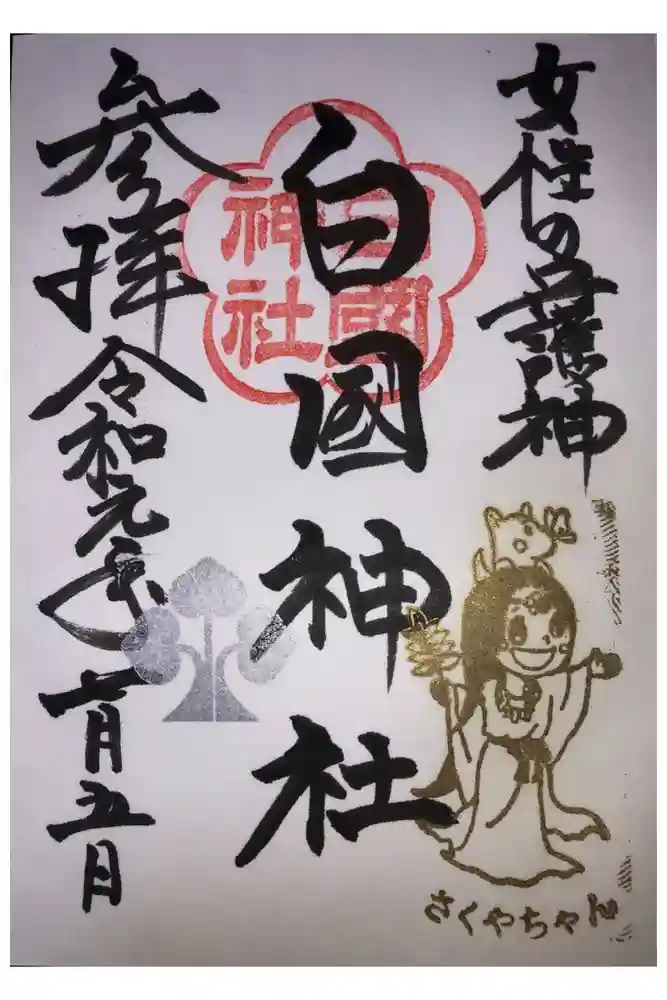 女性の護神
白國神社
白國
神社
参拝
令和元年七月五日
さくやちゃん